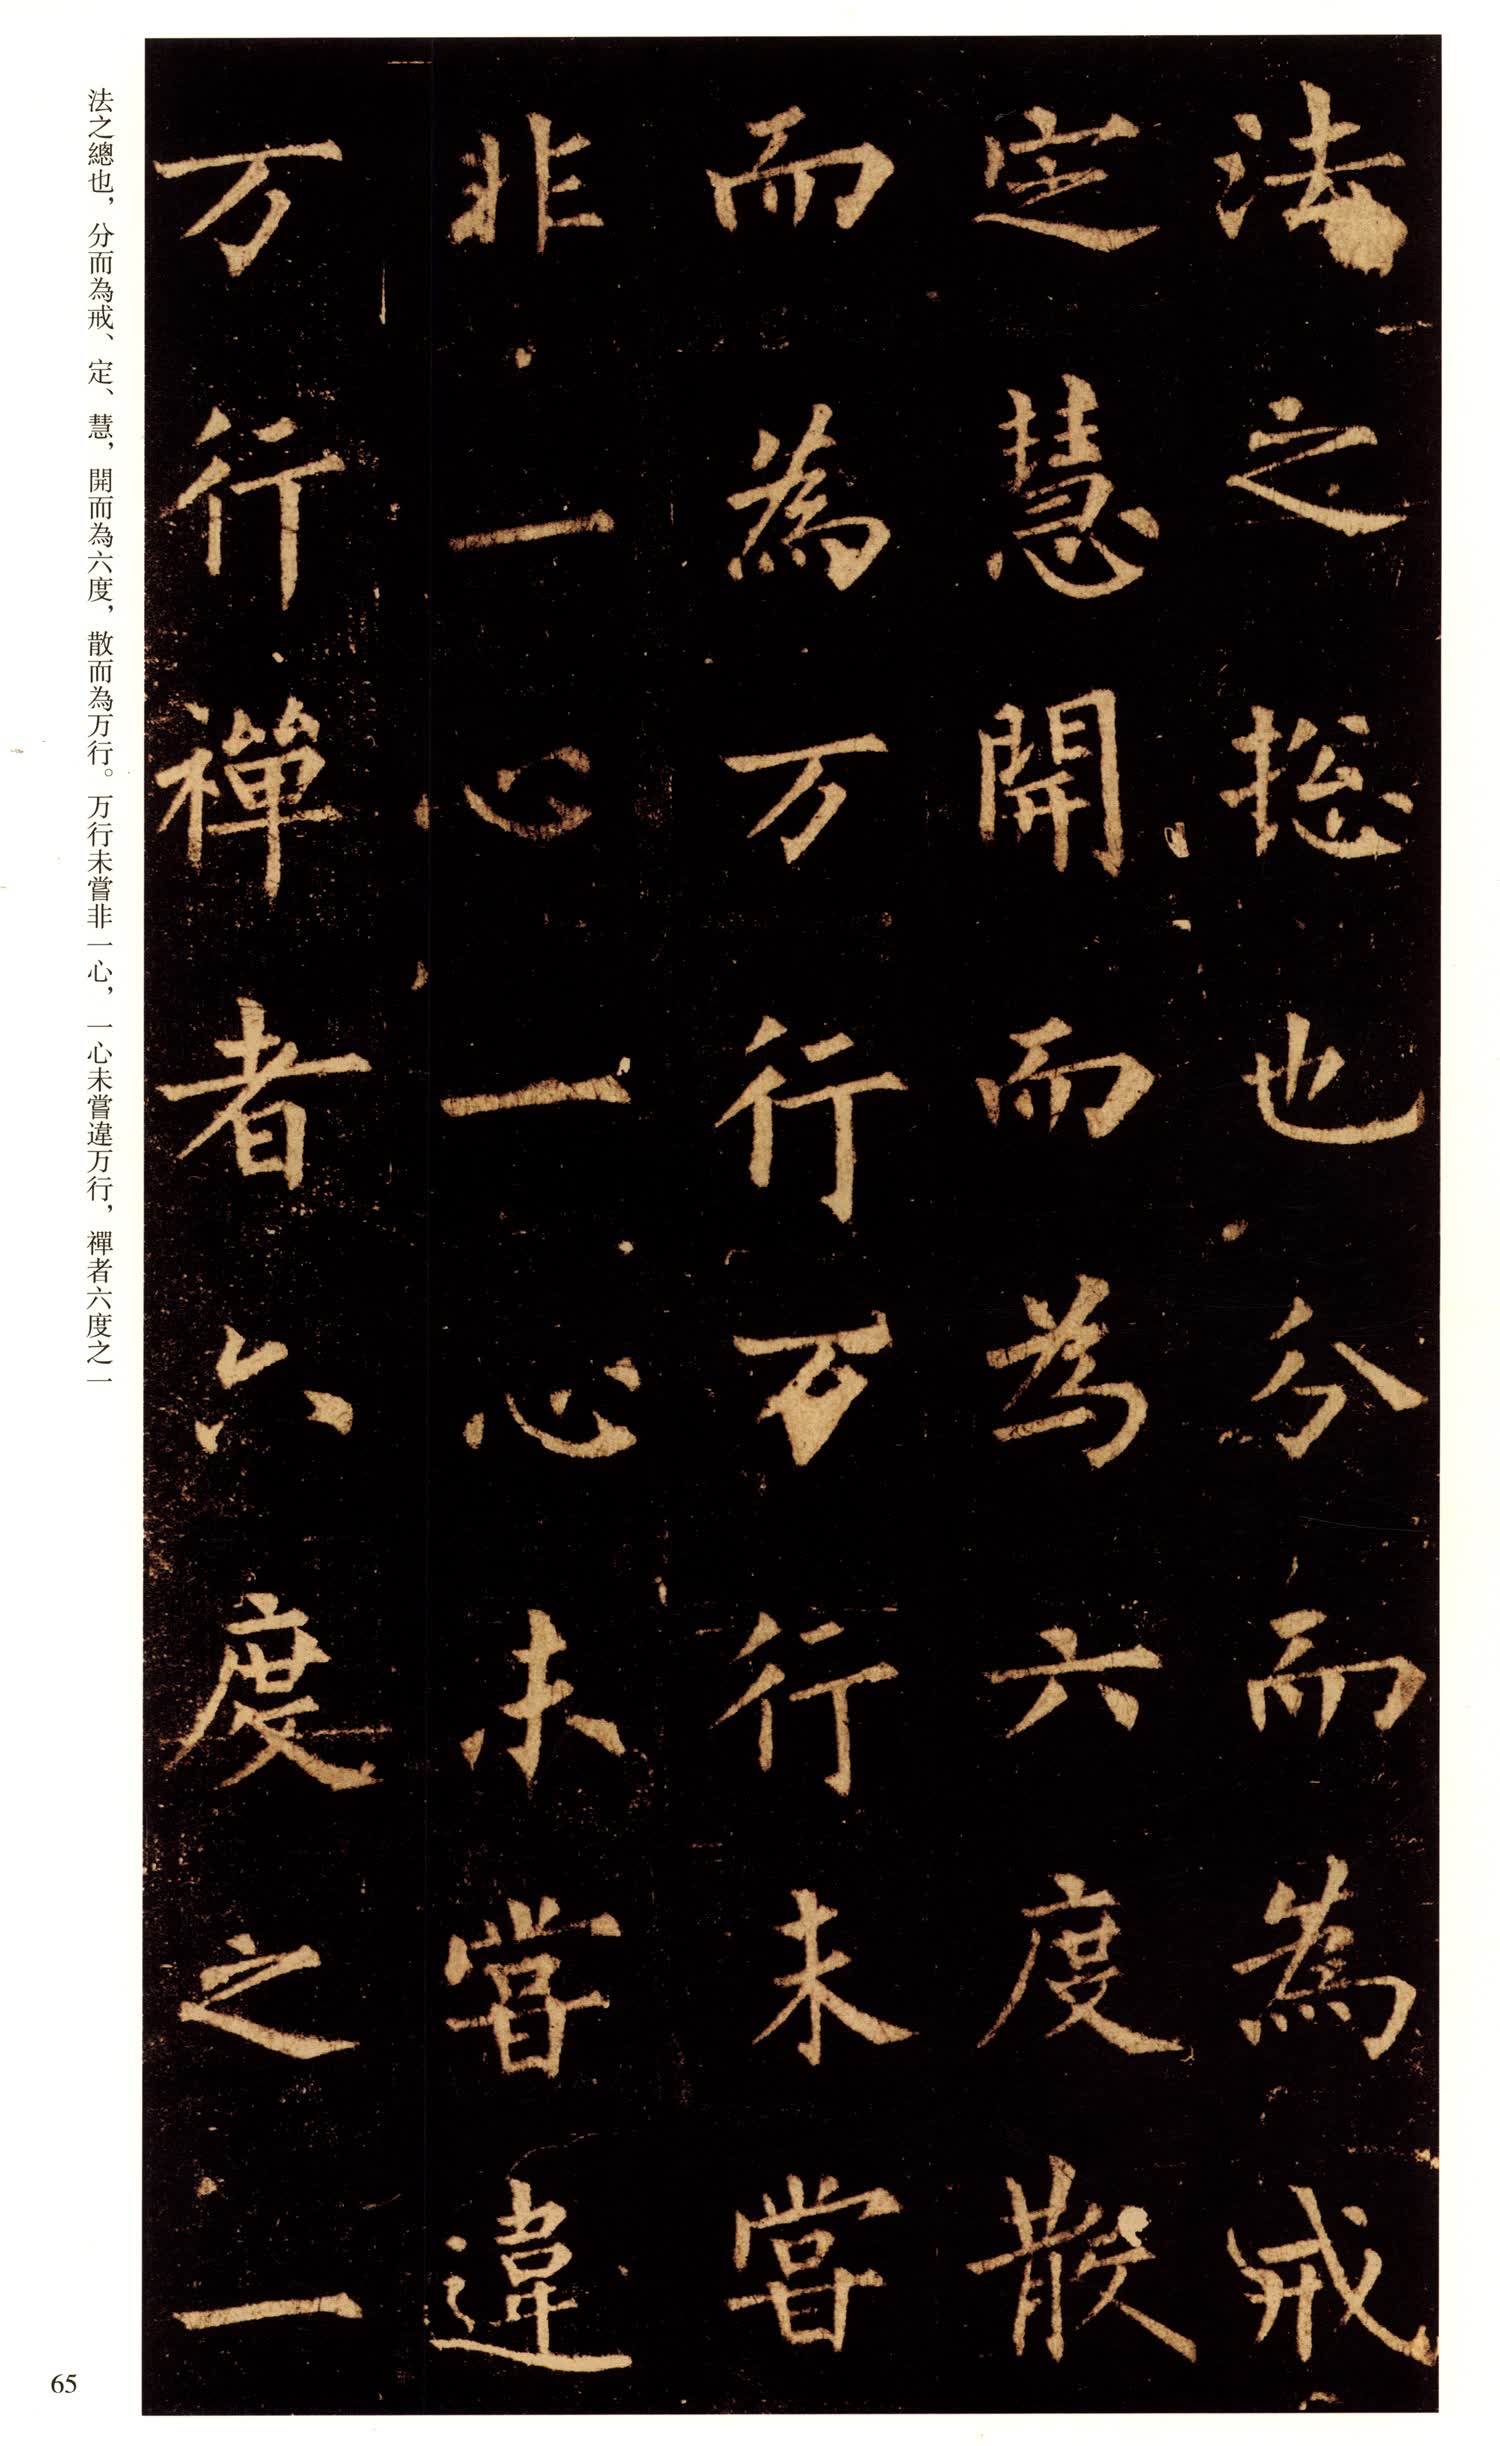 法之揔也分而為戒
定慧開而為六度散
而為万行万行未嘗
非一心一心未嘗違
万行禪者六度之一
法之總也，分而為戒、定、慧，開而為六度，散而為万行。万行未嘗非一心，一心未嘗違万行，禪者六度之一
65